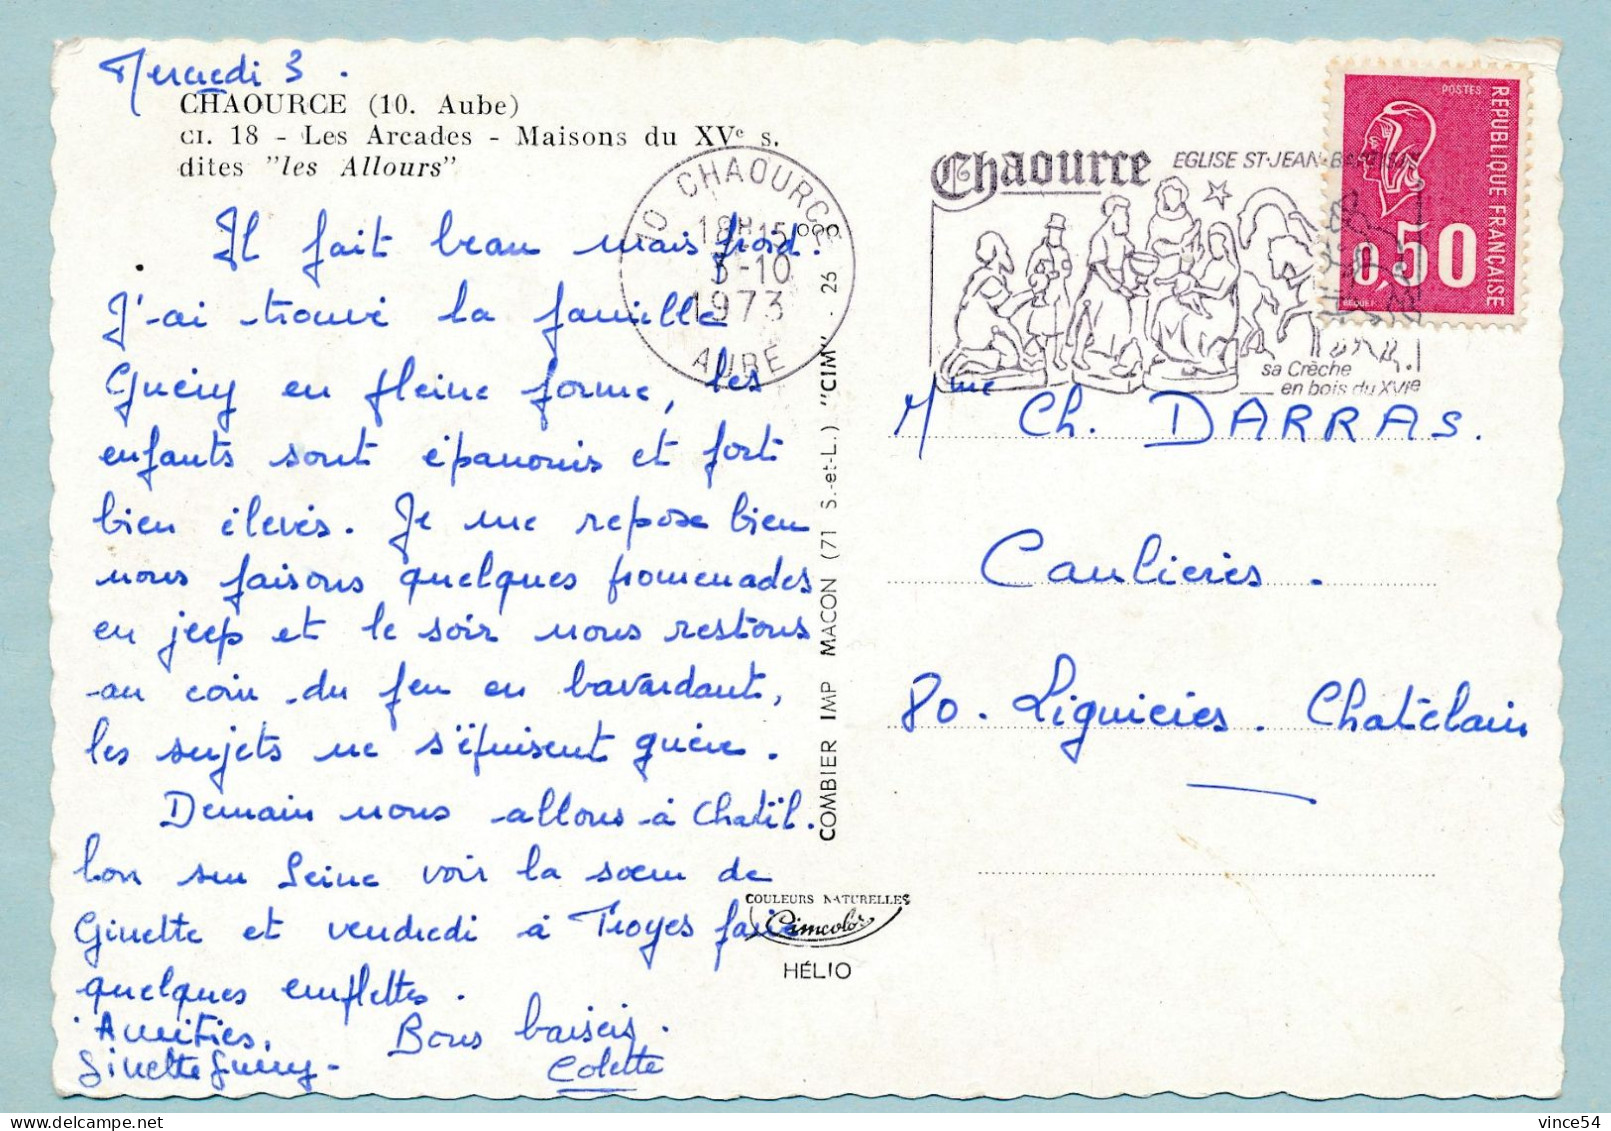 Mercredi 3.
CHAOURCE (10. Aube)
CI. 18 - Les Arcades - Maisons du XVe s.
dites "les Allours"
Il fait beau mais froid.
J'ai trouvé la famille
Guéry en pleine forme, les
enfants sont épanouis et fort
bien élevés. Je me repose bien
nous faisons quelques promenades
en jeep et le soir nous restons
au coin du feu en bavardant,
les sujets ne s'épuisent guère.
Demain nous allons à Chatil.
lon sur Seine voir la sœur de
Ginette et vendredi à Troyes faire
quelques emplettes.
Amitiés, Bons baisers.
Ginette Guéry - Colette
10 CHAOURCE
18H15
3-10
1973
AUBE
COMBIER IMP MACON (71 S.-et-L.) "CIM" . 26
COULEURS NATURELLES
Cimcolor
HÉLIO
Chaource
EGLISE ST-JEAN-BAPTISTE
sa Crèche
en bois du XVIe
POSTES
REPUBLIQUE FRANÇAISE
0,50
BEQUET
Mme Ch. DARRAS.
Caulières.
80. Liguières. Chatelain
vince54